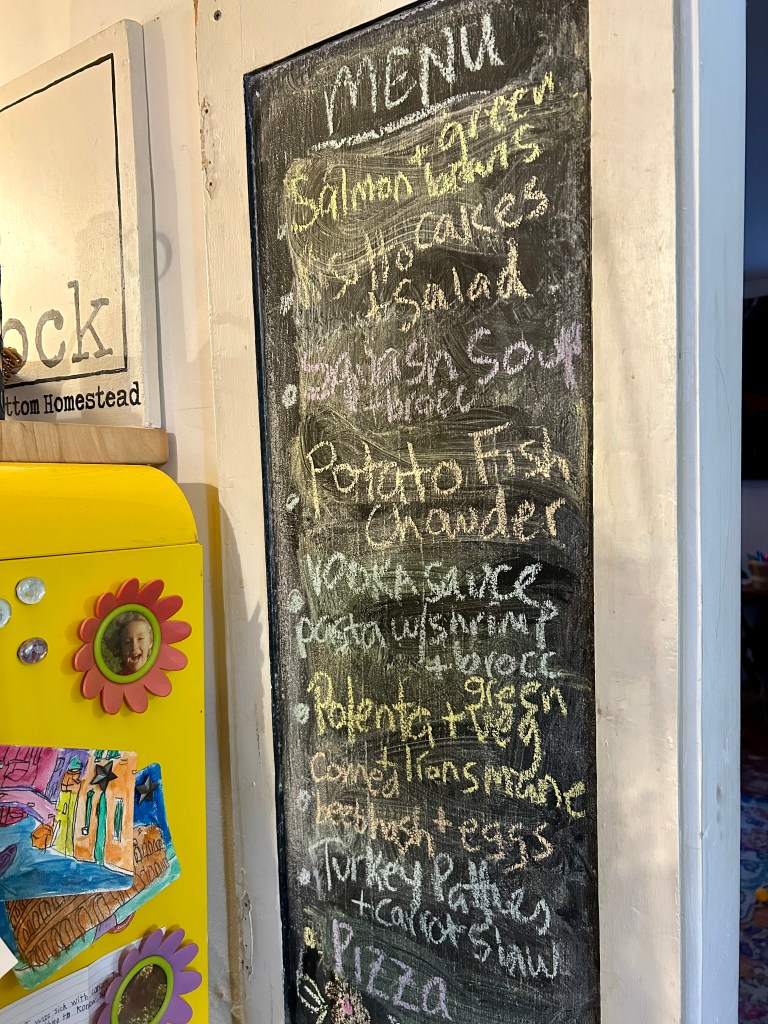 ock
ttom Homestead
MENU
Salmon + green
beans
Risotto cakes
+ Salad
Squash Soup
+ brocc
Potato Fish
Chowder
Vodka sauce
pasta w/ shrimp
+ brocc
Polenta + green
veg
+ lions mane
corned
beef hash + eggs
Turkey Patties
+ carrot slaw
Pizza
was sick with